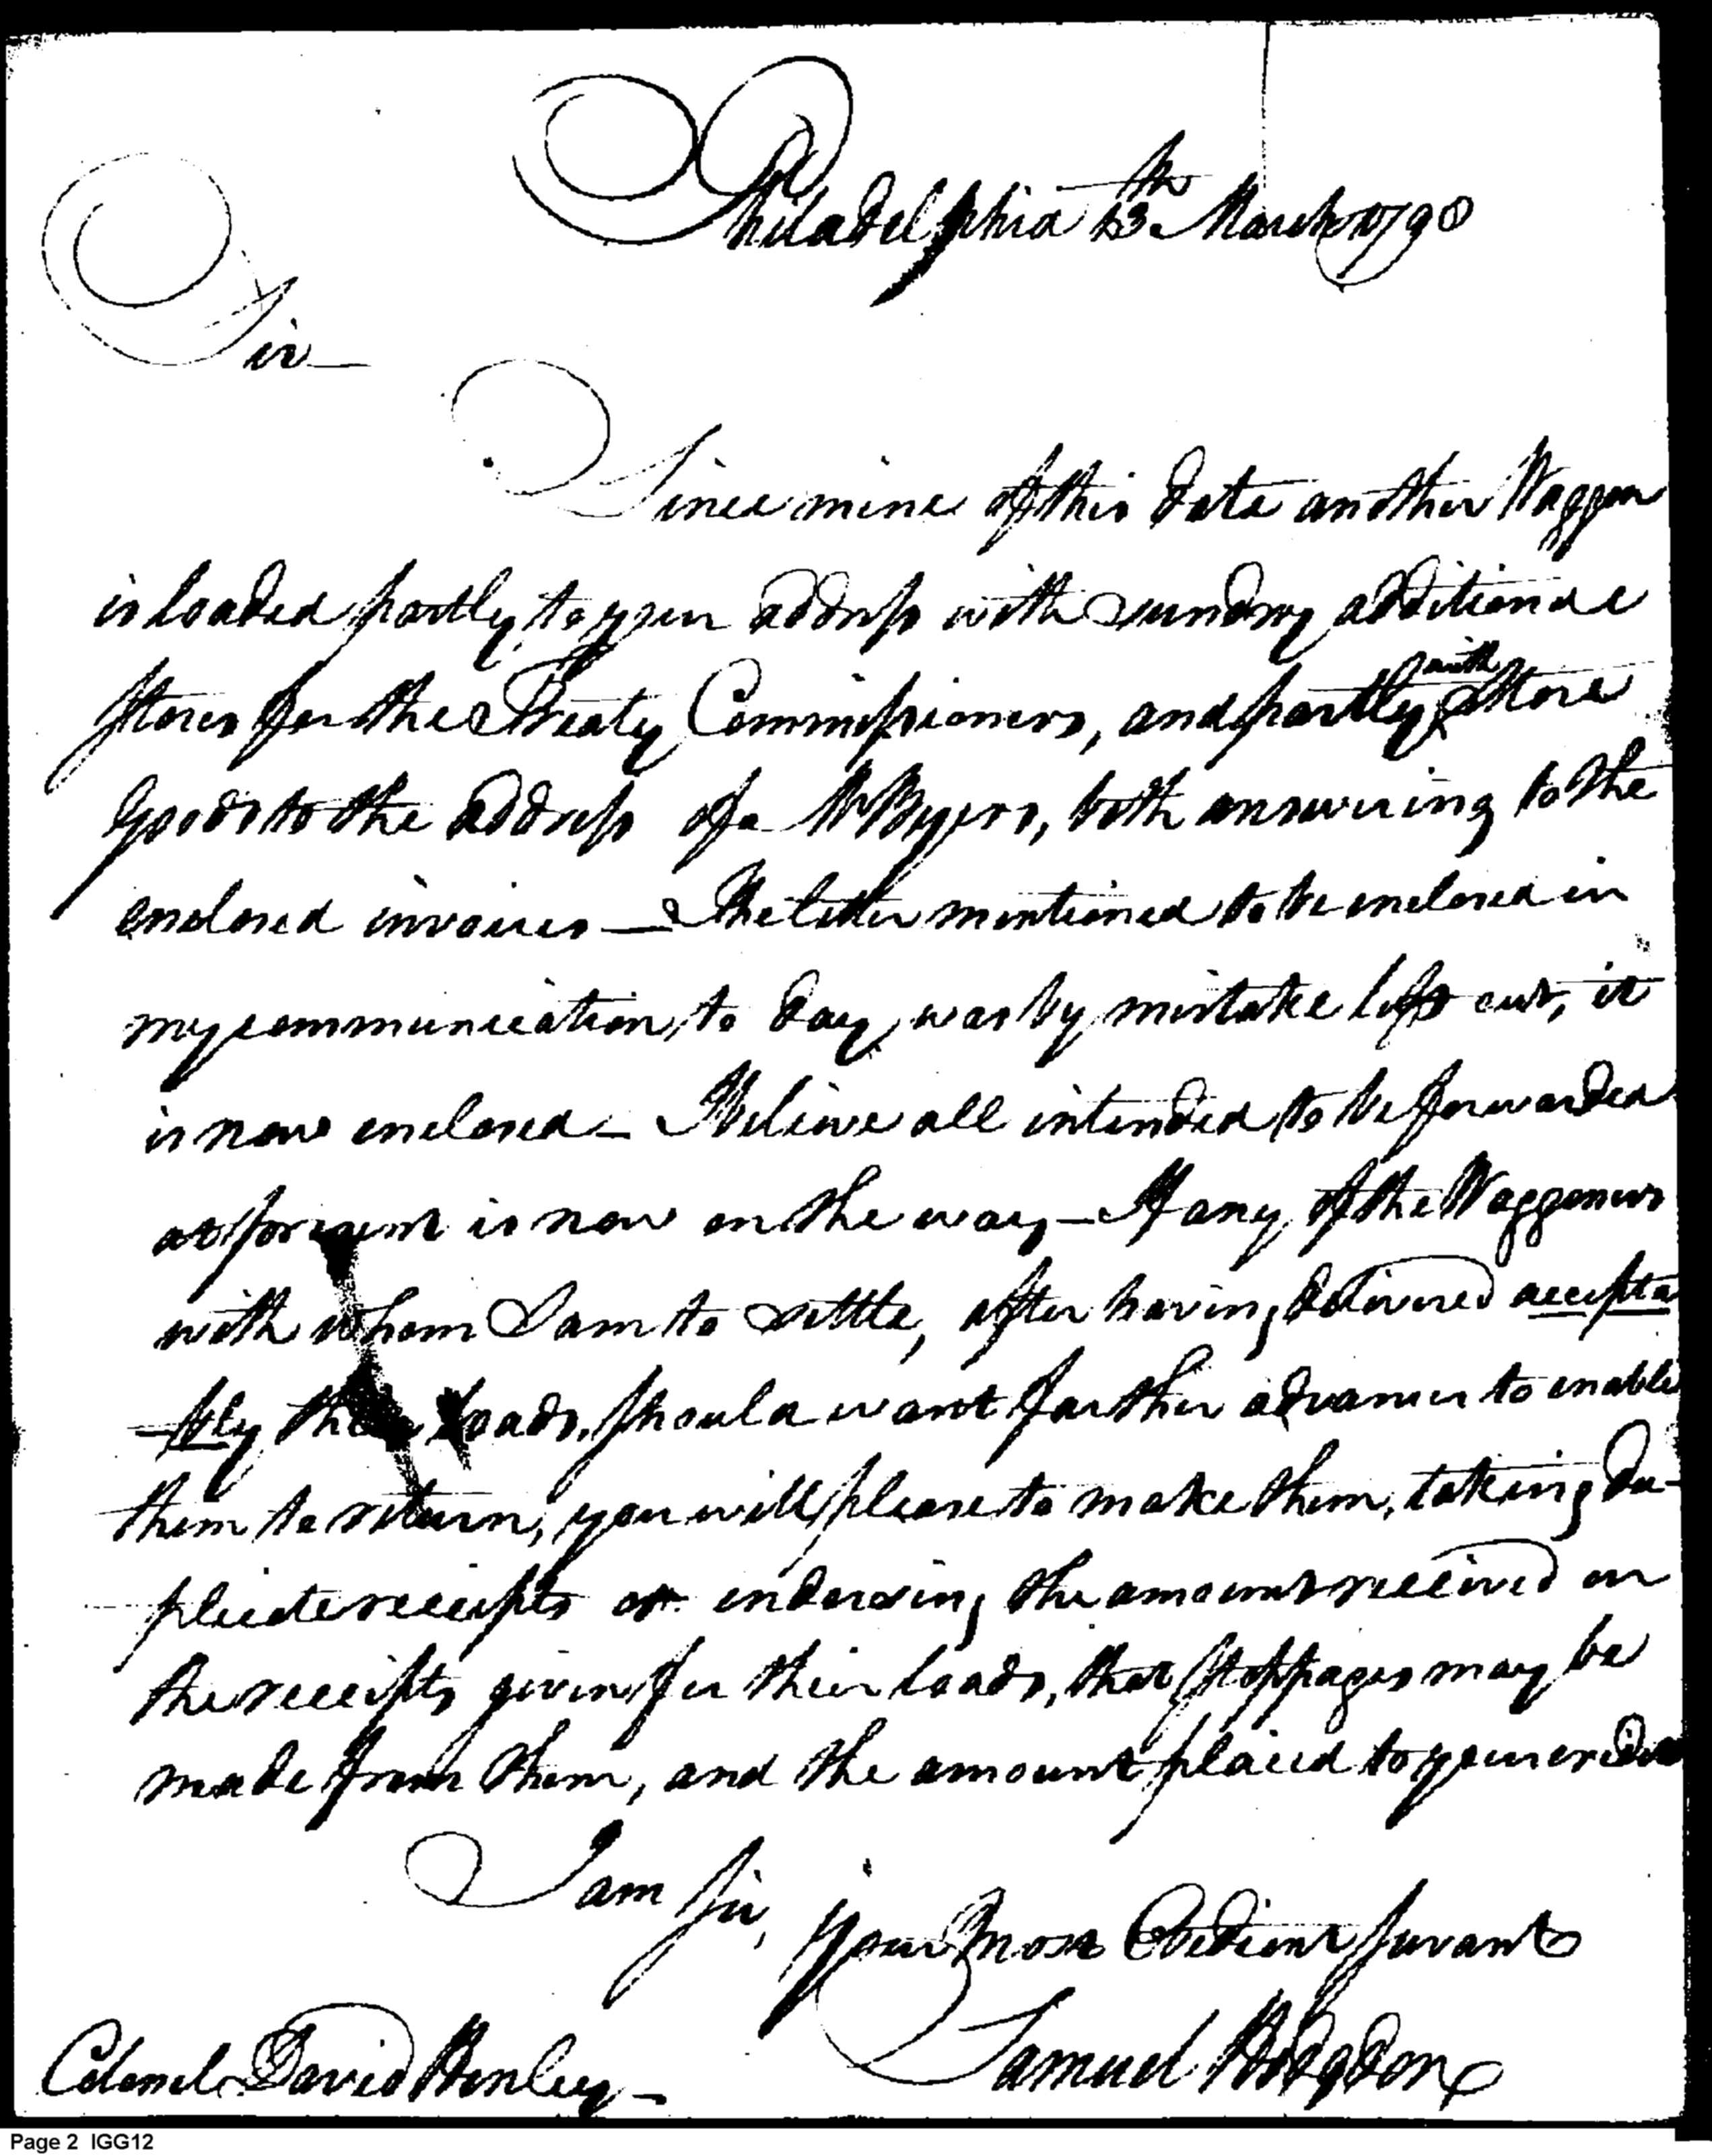 Philadelphia 13th March 1798
Sir
Since mine of this date another Waggon
is loaded partly, to your address with sundry additional
Stores for the Treaty Commissioners, and partly with Store
Goods to the address of a Mr Byers, both answering to the
enclosed invoices — The letter mentioned to be enclosed in
my communication, to day, was by mistake left out, it
is now enclosed — I believe all intended to be forwarded
at present is now on the way — If any, of the Waggoners
with whom I am to settle, after having delivered accepta
-bly their loads, should want farther advances to enable
them to return, you will please to make them, taking du-
plicate receipts or endorsing the amount received on
the receipts given for their loads, that stoppages may be
made from them, and the amount placed to your credit
I am Sir,
Your Most Obedient Servant
Samuel Hodgdon
Colonel David Henley —
Page 2 IGG12